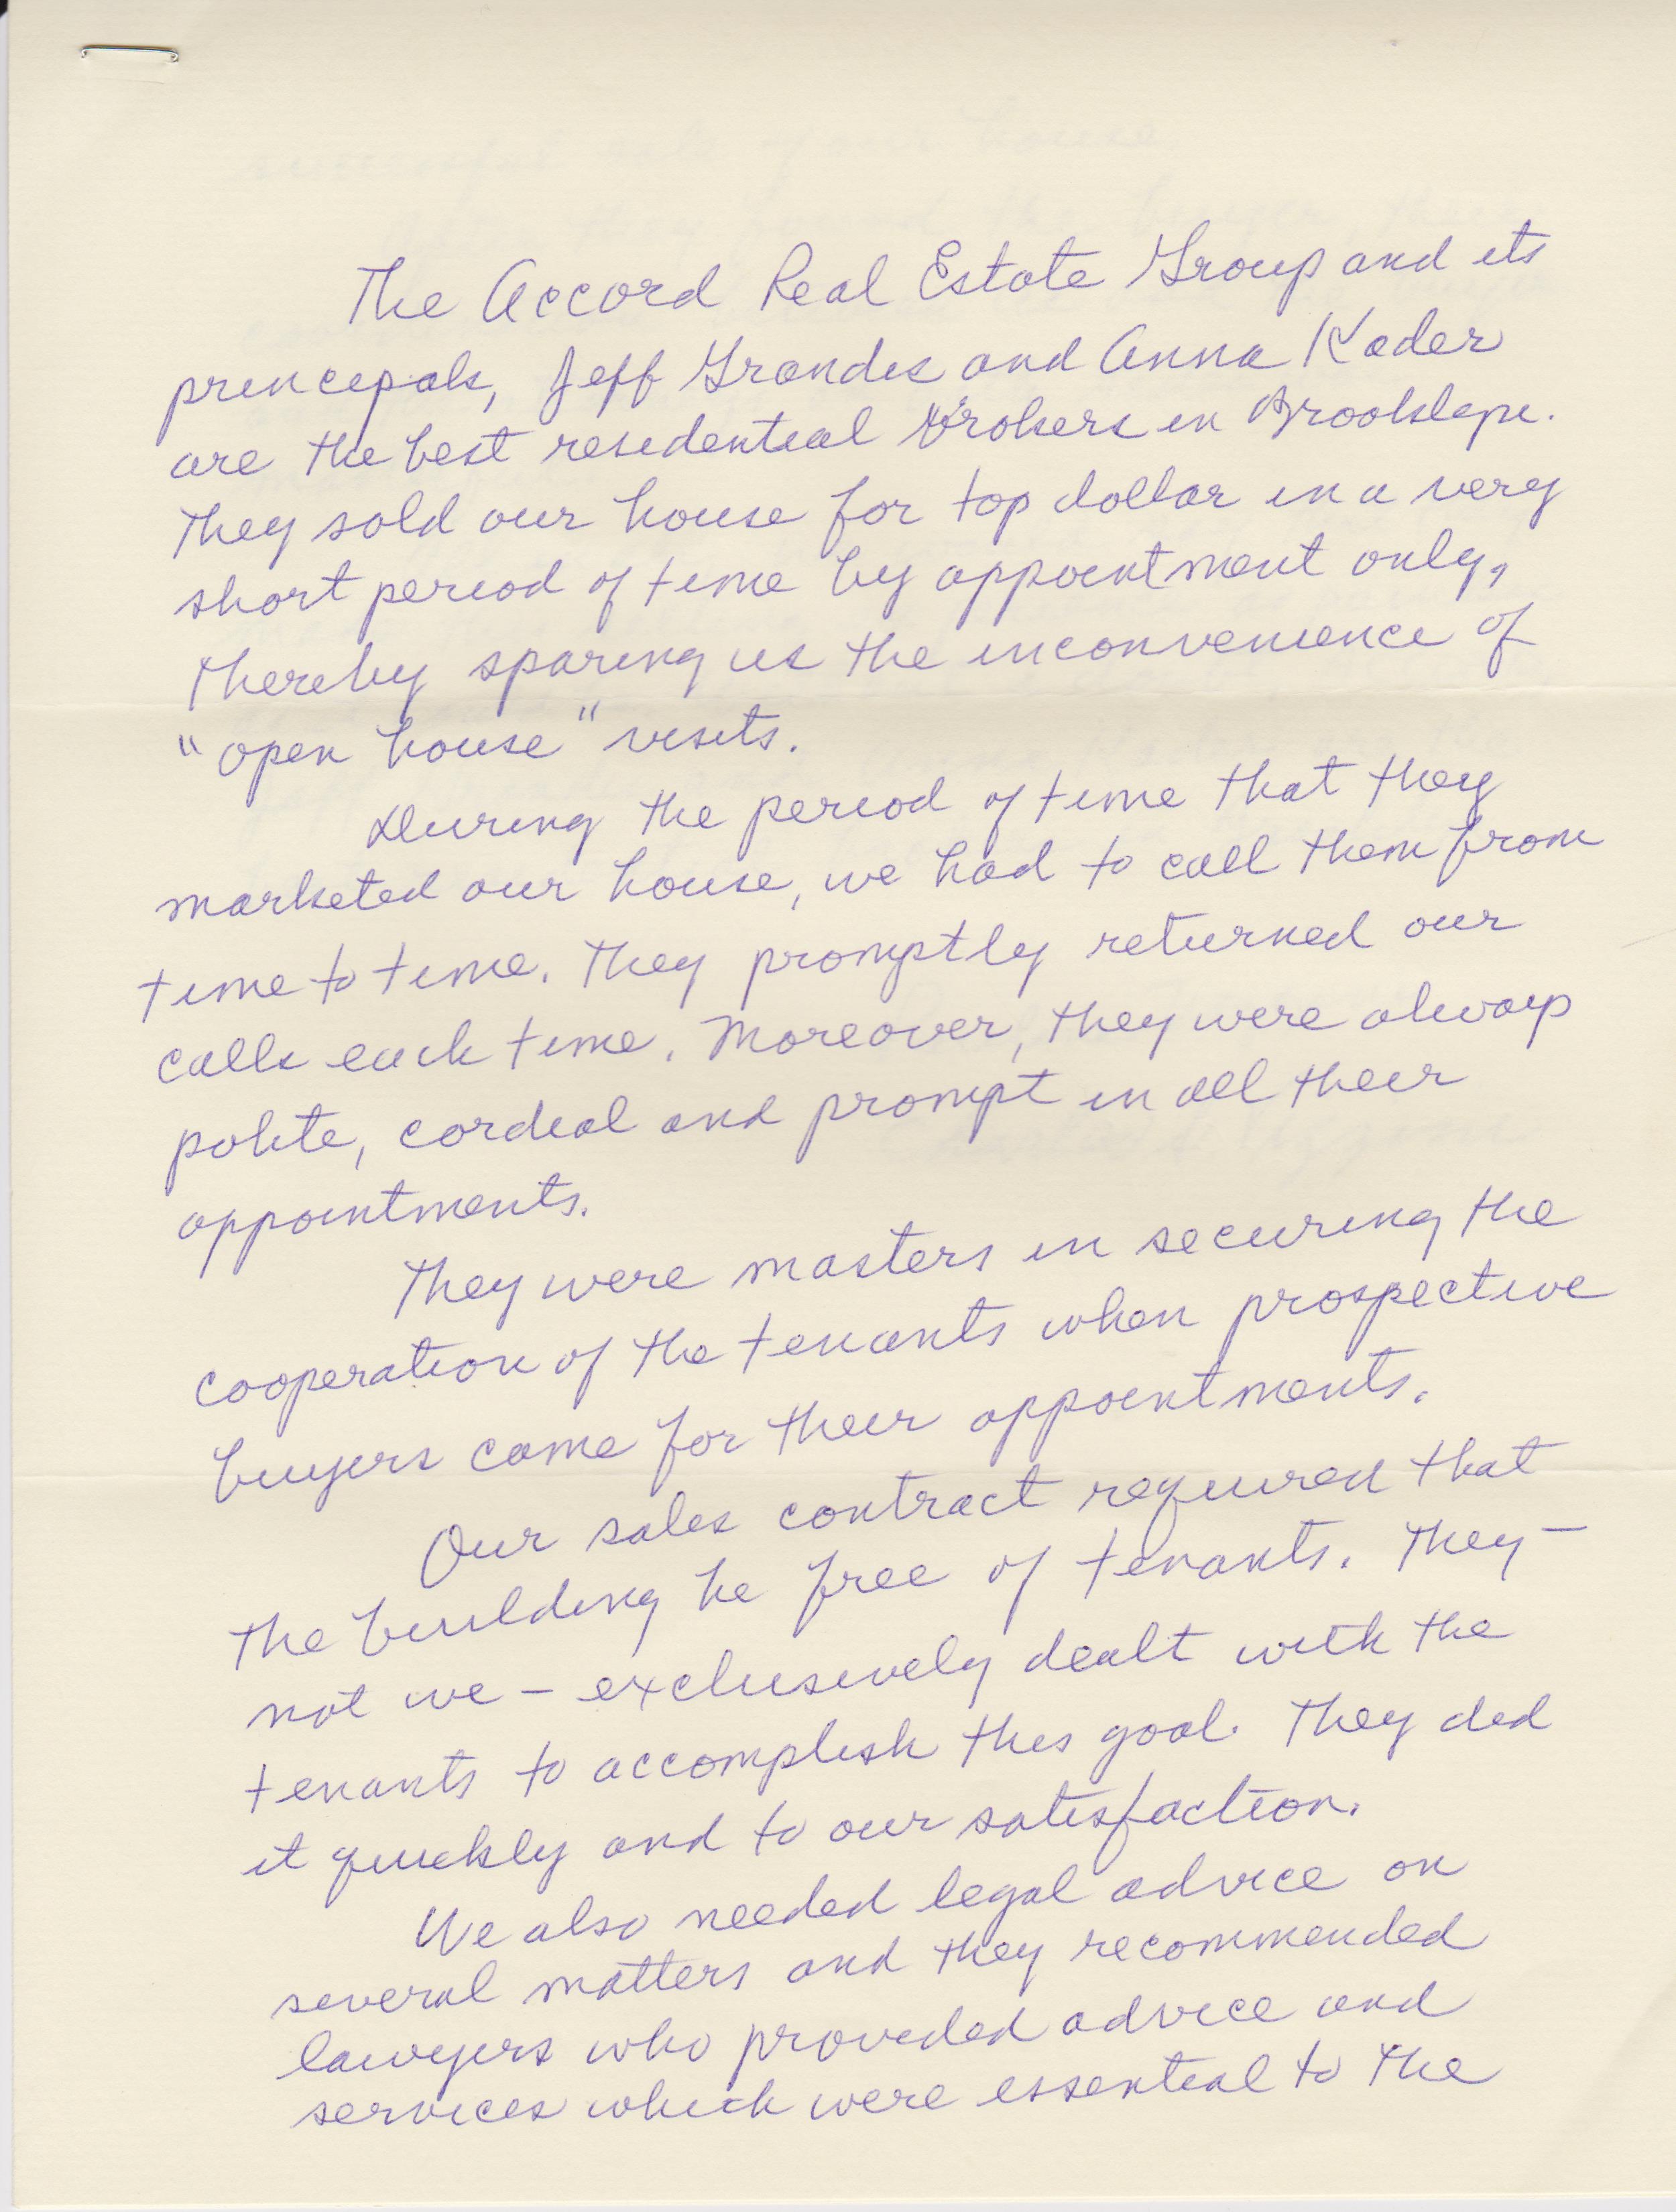 The Accord Real Estate Group and its
principals, Jeff Grandis and Anna Kader
are the best residential Brokers in Brooklyn.
They sold our house for top dollar in a very
short period of time by appointment only,
thereby sparing us the inconvenience of
"open house" visits.
During the period of time that they
marketed our house, we had to call them from
time to time. They promptly returned our
calls each time. Moreover, they were always
polite, cordial and prompt in all their
appointments.
They were masters in securing the
cooperation of the tenants when prospective
buyers came for their appointments.
Our sales contract required that
the building be free of tenants. They –
not we – exclusively dealt with the
tenants to accomplish this goal. They did
it quickly and to our satisfaction.
We also needed legal advice on
several matters and they recommended
lawyers who provided advice and
services which were essential to the